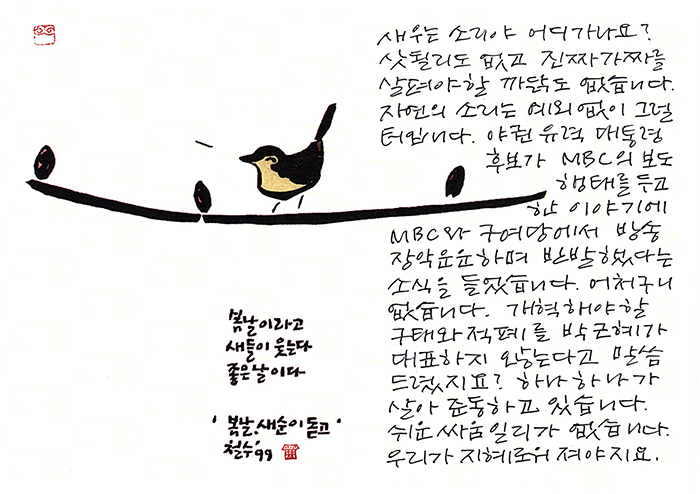 새우는 소리야 어디가나요?
삿될리도 없고 진짜가짜를
살펴야할 까닭도 없습니다.
자연의 소리는 예외 없이 그럴
터입니다. 야권 유력 대통령
후보가 MBC의 보도
행태를 두고
한 이야기에
MBC와 구여당에서 방송
장악운운하며 반발했다는
소식을 들었습니다. 어처구니
없습니다. 개혁해야할
구태와 적폐를 박근혜가
대표하지 않는다고 말씀
드렸지요? 하나하나가
살아 준동하고 있습니다.
쉬운 싸움일리가 없습니다.
우리가 지혜로워져야지요.
봄날이라고
새들이 웃는다
좋은날이다
'봄날, 새순이 돋고'
철수 '99